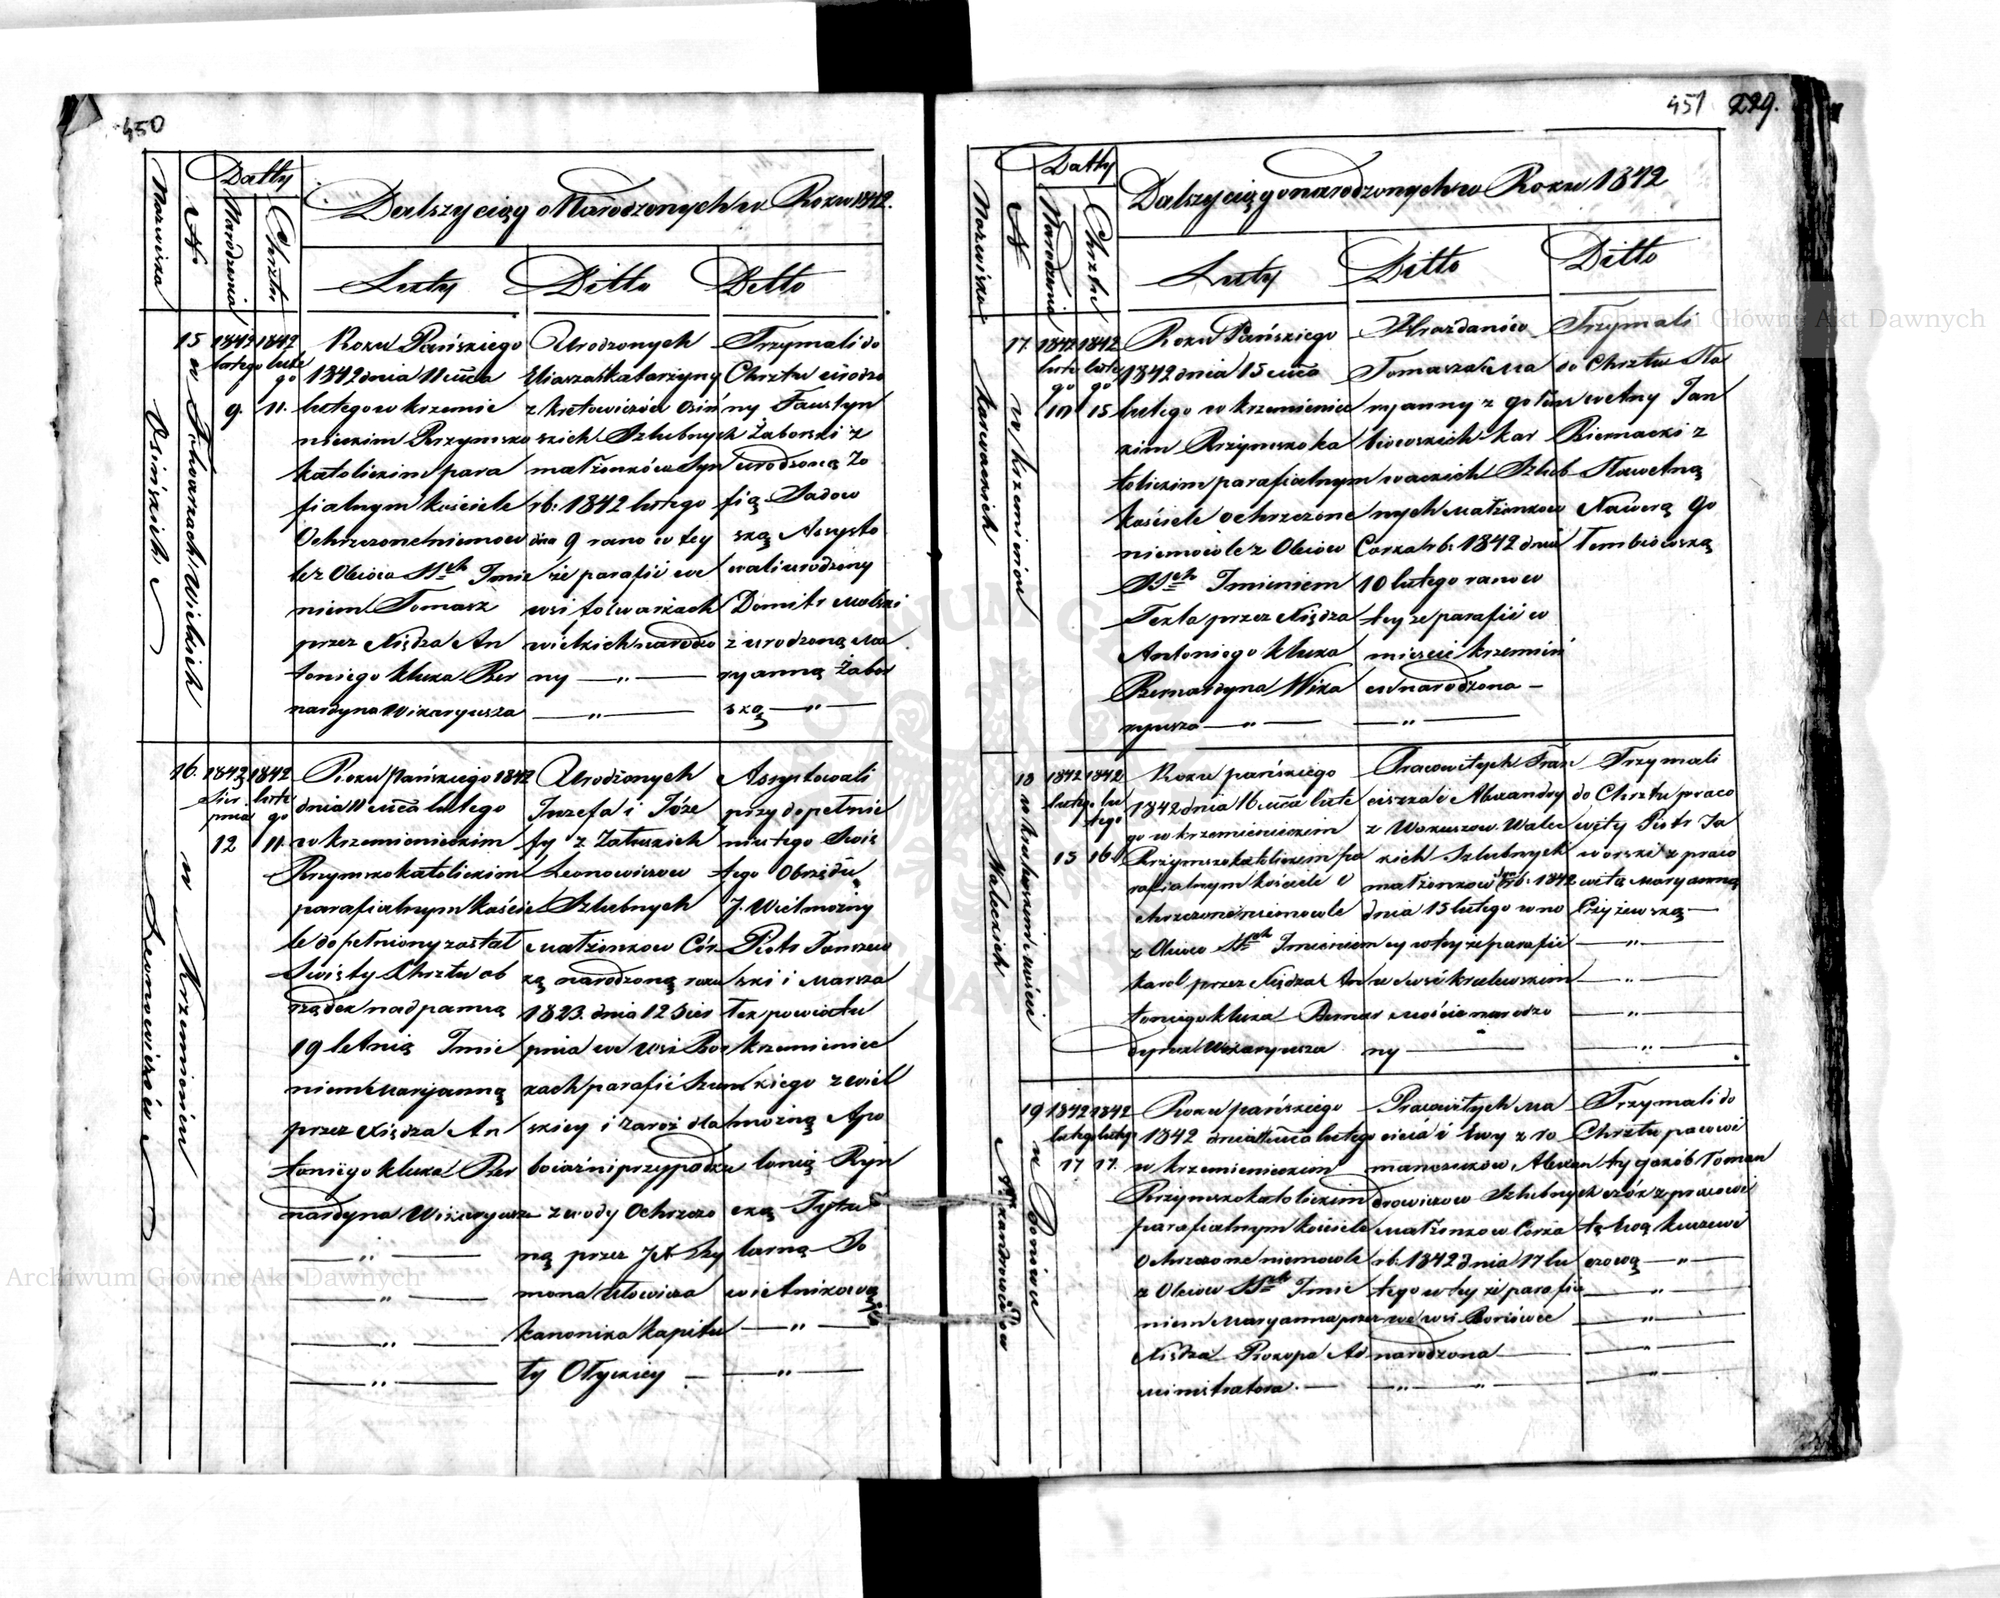 450
Datty
Nazwiska
No
Narodzenia
Chrztu
Dalszy ciąg o Narodzonych w Roku 1842.
Luty
Ditto
Ditto
Osińskich
15
w Folwarkach Wielkich
1842
lutego
9.
1842
lute
go
11.
Roku Pańskiego
1842 dnia 11 mca
lutego w krzemie
nieckim Rzymsko
katolickim para
fialnym kościele
Ochrzczone niemow
le z Oleiów SSch Imie
niem Tomasz
przez Xiędza An
toniego kluka Ber
nardyna Wikaryusza
Urodzonych
Eliasza i katarzyny
z kretowiczów Osiń
skich Szlubnych
małżonków Syn
rb: 1842 lutego
dnia 9 rano w tey
że parafii we
wsi folwarkach
wielkich narodzo
ny
Trzymali do
Chrztu urodzo
ny Faustyn
Żaborski z
urodzoną Zo
fią Sadow
ską Assysto
wali urodzony
Domitr malski
z urodzoną Ma
ryanną Żabor
ską
Leonowiczów
16.
w Krzemieńcu
1842
Sier
pnia
12
1842
lute
go
11.
Roku Pańskiego 1842
dnia 11 mca lutego
w krzemienieckim
Rzymskokatolickim
parafialnym koście
le dopełniony został
Swięty Chrztu ob
rządek nad panną
19 letnią Imie
niem Maryanną
przez Xiędza An
toniego kluka Ber
nardyna Wikaryusza
Urodzonych
Jozefa i Józe
fy z Załuskich
Leonowiczow
Szlubnych
Małżonkow Cór
ką narodzoną roku
1823. dnia 12 Sier
pnia we wsi Bor
kach parafii Szum
skiey i zaraz dla
boiaźni przypadku
z wody Ochrzczo
ną przez JX Szy
mona
kanonika kapitu
ły Ołyckiey
Assystowali
przy dopełnie
niu tego Swię
tego Obrzędu
J. Wielmożny
Piotr Janczew
ski i Marsza
łek powiatu
krzemieniec
kiego z wiel
możną Apo
lonią Ryn
cką Tytu
larną So
wietnikową
451
229.
Datty
Nazwiska
No
Narodzenia
Chrztu
Dalszy ciąg o narodzonych w Roku 1842
Luty
Ditto
Ditto
Karwackich
17.
w krzemieńcu
1842
lute
go
10
1842
lute
go
15
Roku Pańskiego
1842 dnia 15 mca
lutego w krzemieniec
kim Rzymsko ka
tolickim parafialnym
kościele ochrzczone
niemowle z Oleiów
SSch Imieniem
Tekla przez Xiędza
Antoniego kluka
Bernardyna Wika
ryusza
Hrazdanów
Tomasza i Ma
ryanny z gołem
biowskich kar
wackich Szlub
nych Małżonkow
Corka rb: 1842 dnia
10 lutego rano w
tey że parafii w
mieście krzemień
cu narodzona
Trzymali
do Chrztu Sła
wetny Jan
Biernacki z
Sławetną
Xawerą Go
lembiowską
Waleckich
18
1842
lutego
15
1842
lu
tego
16
Roku pańskiego
1842 dnia 16 mca lute
go w krzemienieckim
Rzymskokatolickim pa
rafialnym kościele o
chrzczone niemowle
z Oleiów SSch Imieniem
karol przez Xiędza An
toniego kluka Bernar
dyna Wikaryusza
Pracowitych Fran
ciszka i Alexandry
z Waruszow Walec
kich Szlubnych
małżonkow Syn rb: 1842
dnia 15 lutego w no
cy w tey że parafii
w wsi krulewskim
moście narodzo
ny
Trzymali
do Chrztu praco
wity Piotr Ja
worski z praco
witą Maryanną
Czyżewską
Alexandrowiczow
19
w Bonówce
1842
lutego
17
1842
lutego
17.
Roku pańskiego
1842 dnia 17 mca lutego
w krzemienieckim
Rzymskokatolickim
parafialnym kościele
Ochrzczone niemowle
z Oleiów SSch Imie
niem Maryanna przez
Xiędza Prokopa Ad
ministratora.
Pracowitych Ma
cieia i Ewy z ro
manczukow, Alexan
drowiczow Szlubnych
Małżonkow Corka
rb: 1842 dnia 17 lu
tego w tey że parafii
we wsi Borsówce
narodzona
Trzymali do
Chrztu pracowi
ty Jakób Toman
czók z pracowi
tą Ewą kuczewi
czową
Archiwum Główne Akt Dawnych
Archiwum Główne Akt Dawnych